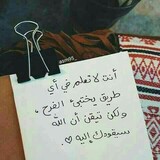 أنت لا تعلم في أي
طريق يختبئ الفرح ،
ولكن تيقن أن الله
سيقودك إليه